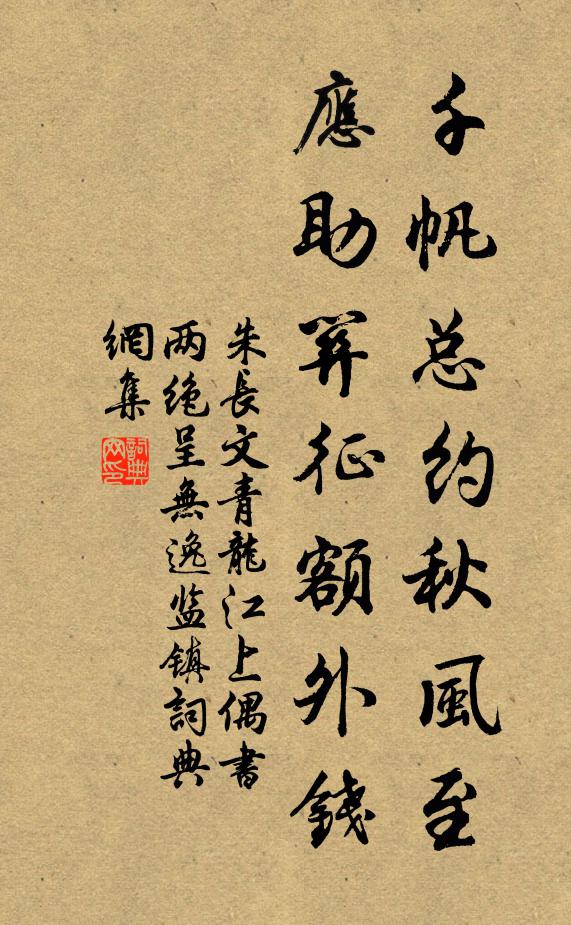 千帆总约秋風至
應助筭征額外錢
朱長文青龍江上偶書
两绝呈無逸监镇詞典
網集
詞典
网印